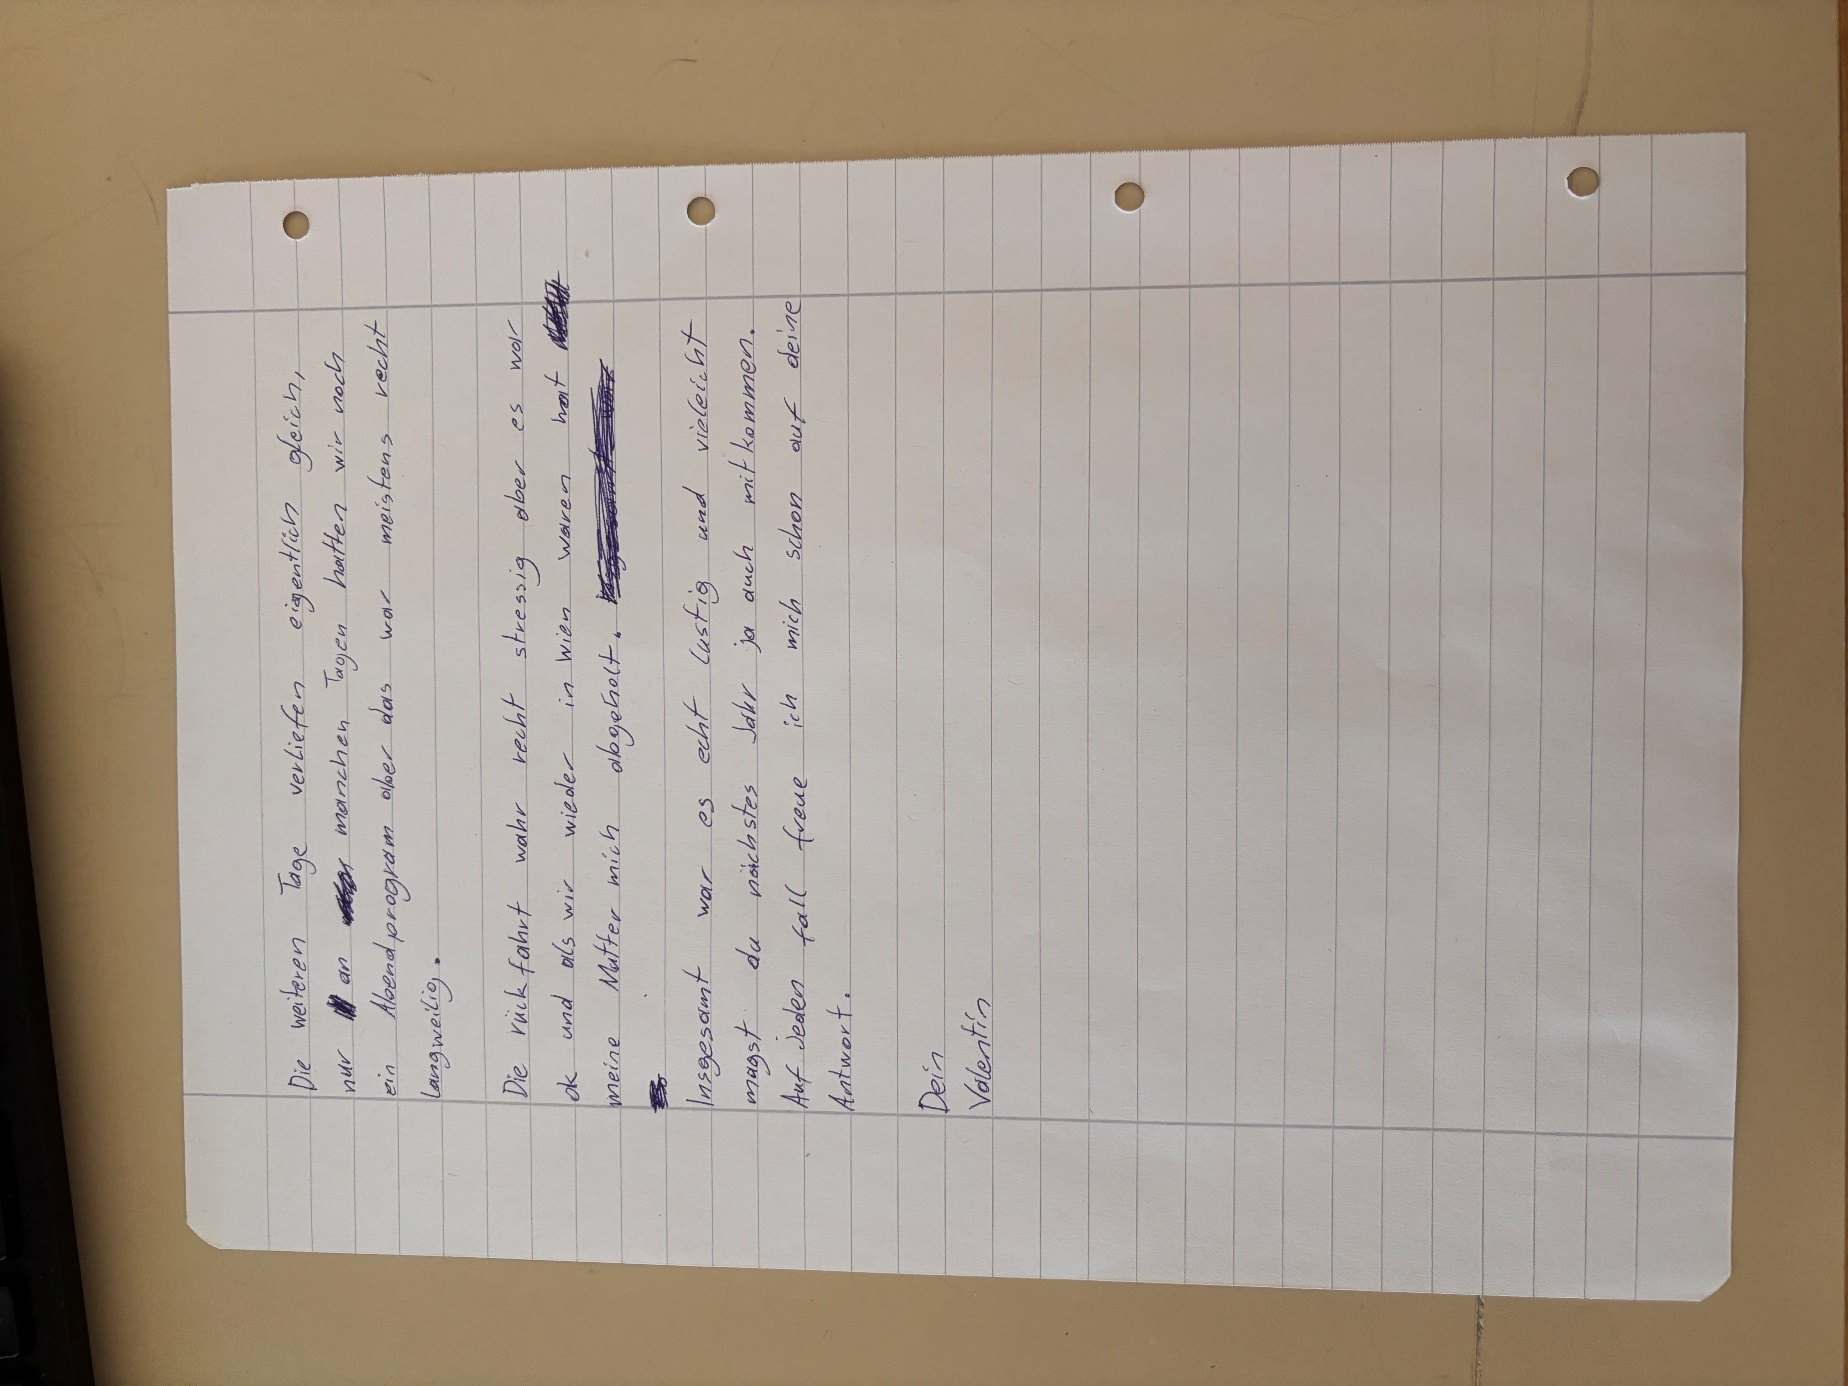 Die weiteren Tage verliefen eigentlich gleich,
nur an manchen Tagen hatten wir noch
ein Abendprogram aber das war meistens recht
langweilig.
Die rückfahrt wahr recht stressig aber es war
ok und als wir wieder in wien waren hat
meine Mutter mich abgeholt.
Insgesamt war es echt lustig und vieleicht
magst du nächstes Jahr ja auch mitkommen.
Auf jeden fall freue ich mich schon auf deine
Antwort.
Dein
Valentin